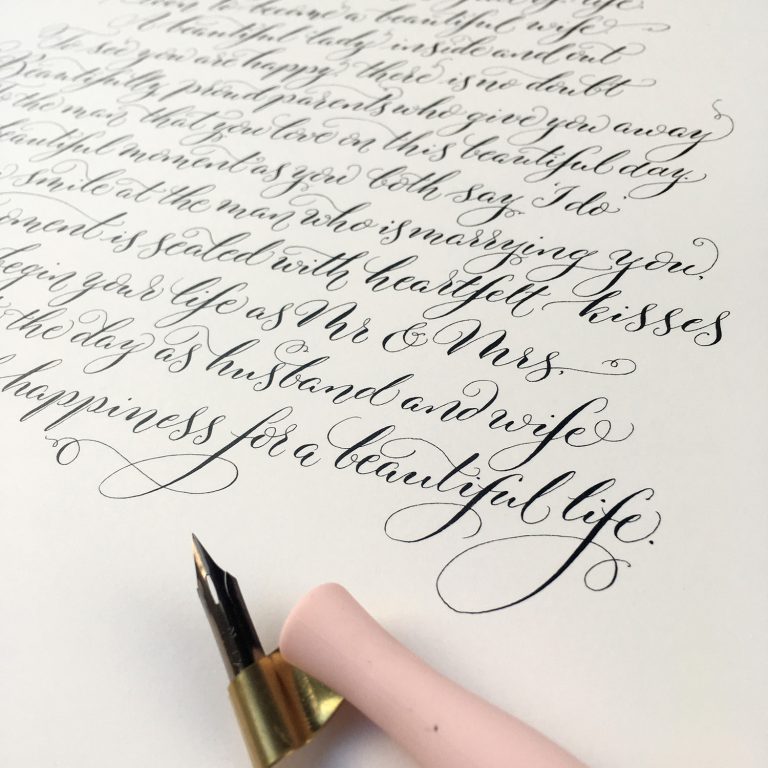 life
to become a beautiful wife
A beautiful lady inside and out
To see you are happy there is no doubt
Beautifully proud parents who give you away
the man that you love on this beautiful day.
beautiful moment as you both say 'I do'
smile at the man who is marrying you,
moment is sealed with heartfelt kisses
begin your life as Mr & Mrs.
the day as husband and wife
happiness for a beautiful life.